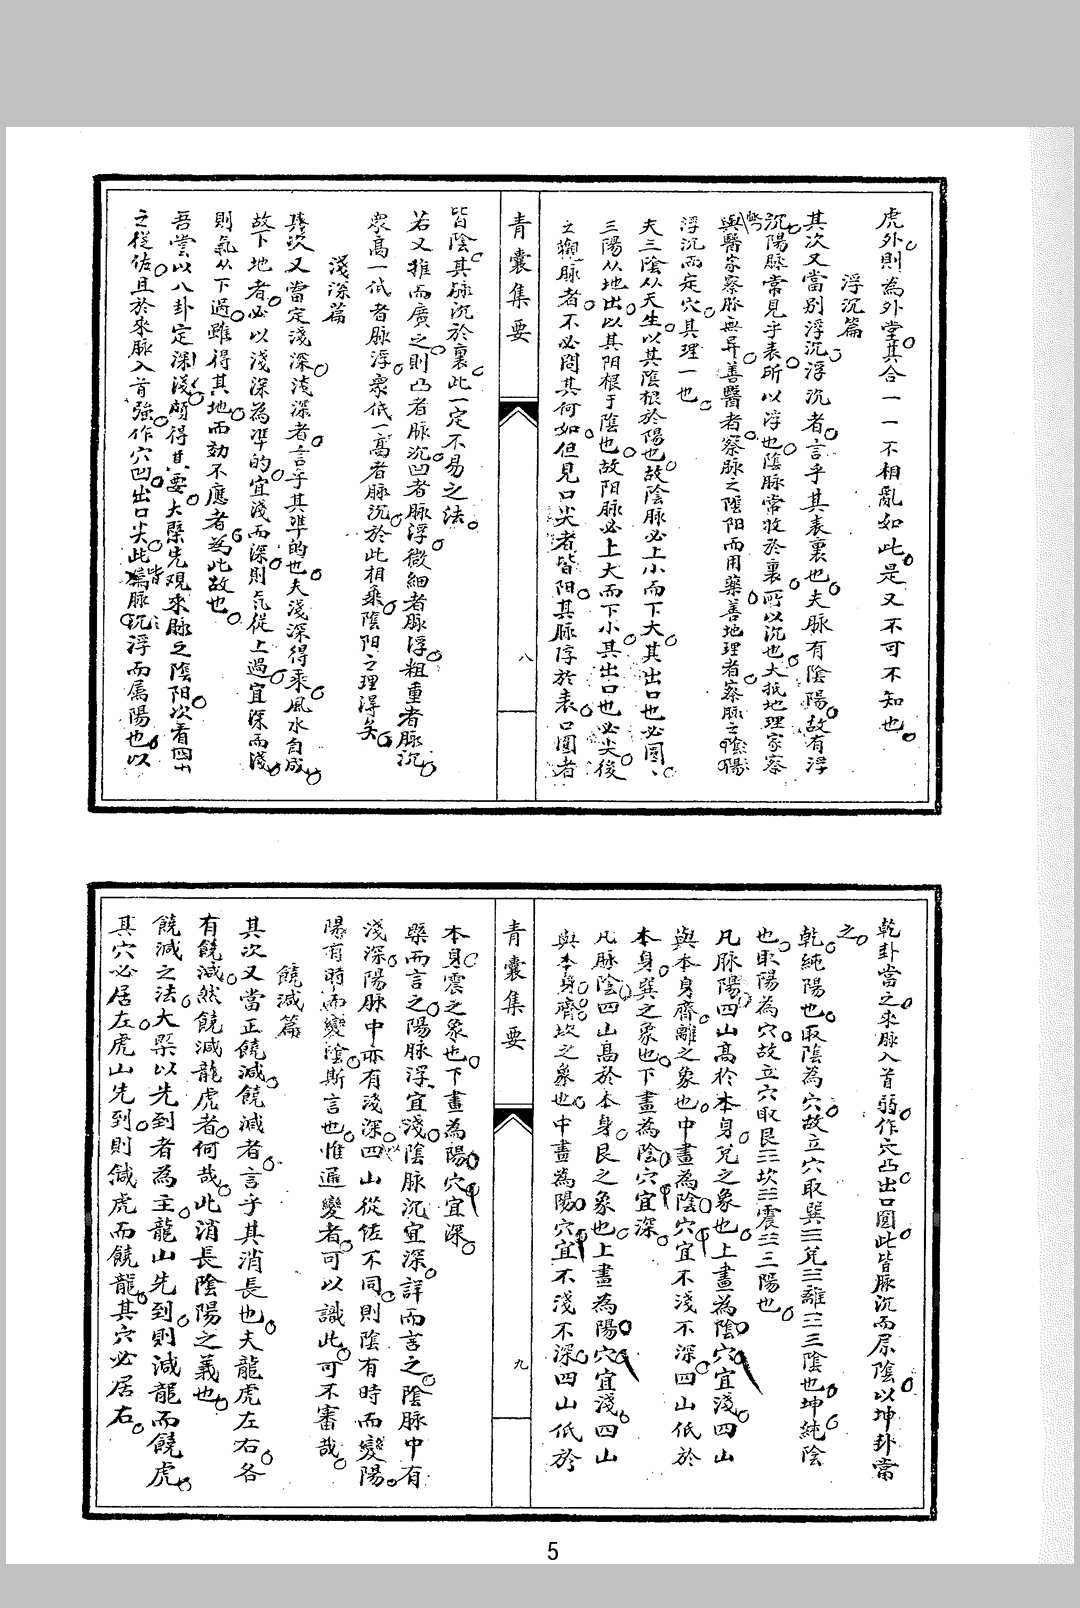 虎外則為外堂其合一一不相亂如此是又不可不知也
浮沉篇
其次又當别浮沉浮沉者言乎其表裏也夫脉有陰陽故有浮
沉陽脉常見乎表所以浮也陰脉常收於裏所以沉也大抵地理家察
脉與醫家察脉無异善醫者察脉之陰陽而用藥善地理者察脉之陰陽
浮沉而定穴其理一也
夫三陰从天生以其陰根於陽也故陰脉必上小而下大其出口也必圓
三陽从地出以其阳根于陰也故阳脉必上大而下小其出口也必尖後
之觀脉者不必問其何如但見口尖者皆阳其脉浮於表口圓者
青囊集要
八
皆陰其脉沉於裏此一定不易之法
若又推而廣之則凸者脉沉凹者脉浮微細者脉浮粗重者脉沉
衆高一低者脉浮衆低一高者脉沉於此相乘陰阳之理得矣
淺深篇
其次又當定淺深淺深者言乎其準的也夫淺深得乘風水自成
故下地者必以淺深為準的宜淺而深則氣從上過宜深而淺
則氣从下過雖得其地而効不應者為此故也
吾嘗以八卦定深淺頗得其要大槩先观來脉之陰阳次看四山
之從佐且於來脉入首強作穴凹出口尖此皆脉浮而属陽也以
乾卦當之來脉入首弱作穴凸出口圓此皆脉沉而属陰以坤卦當
之
乾純陽也取陰為穴故立穴取巽☴兑☱離☲三陰也坤純陰
也取陽為穴故立穴取艮☶坎☵震☳三陽也
凡脉陽四山高於本身兑之象也上畫為陰穴宜淺四山
與本身齊離之象也中畫為陰穴宜不淺不深四山低於
本身巽之象也下畫為陰穴宜深
凡脉陰四山高於本身艮之象也上畫為陽穴宜淺四山
與本身齊坎之象也中畫為陽穴宜不淺不深四山低於
青囊集要
九
本身震之象也下畫為陽穴宜深
槩而言之陽脉浮宜淺陰脉沉宜深詳而言之陰脉中有
淺深陽脉中亦有淺深四山從佐不同則陰有時而變陽
陽有時而變陰斯言也惟通變者可以識此可不審哉
饒減篇
其次又當正饒減饒減者言乎其消長也夫龍虎左右各
有饒減然饒減龍虎者何哉此消長陰陽之義也
饒減之法大槩以先到者為主龍山先到則減龍而饒虎
其穴必居左虎山先到則減虎而饒龍其穴必居右
5